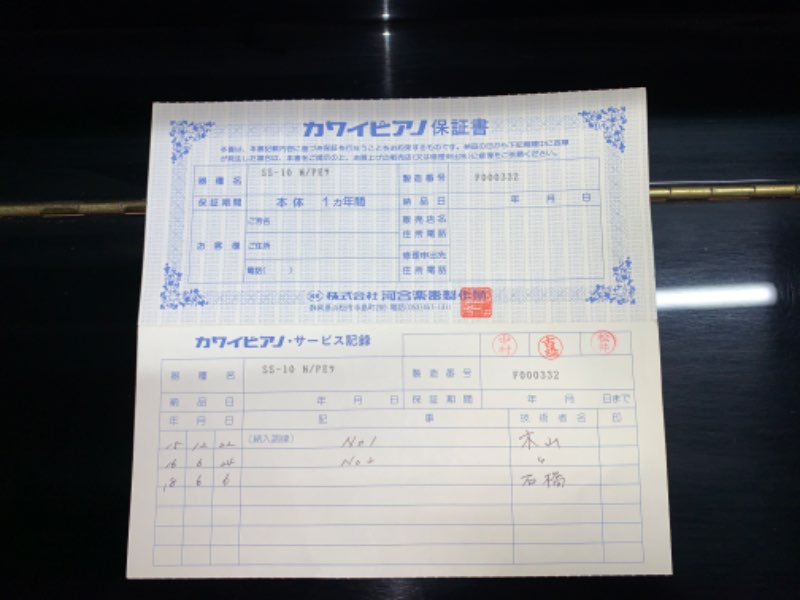 カワイピアノ 保証書
本書は、本書記載内容に基づき保証を行なうことをお約束するものです。
器種名 SS-10 M/PEｸ 製造番号 F000332
保証期間 本体 1ヵ年間 納品日 年 月 日
お客様 ご芳名 販売店名
住所電話
ご住所
修理申出先
電話( ) 住所電話
株式会社 河合楽器製作所
カワイピアノ・サービス記録
中村 松井
器種名 SS-10 M/PEｸ 製造番号 F000332
納品日 年 月 日 保証期間 年 月 日まで
年 月 日 記事 技術者名 印
15 12 22 (納入調律) No1 木山
16 6 24 No2 〃
18 6 6 石橋